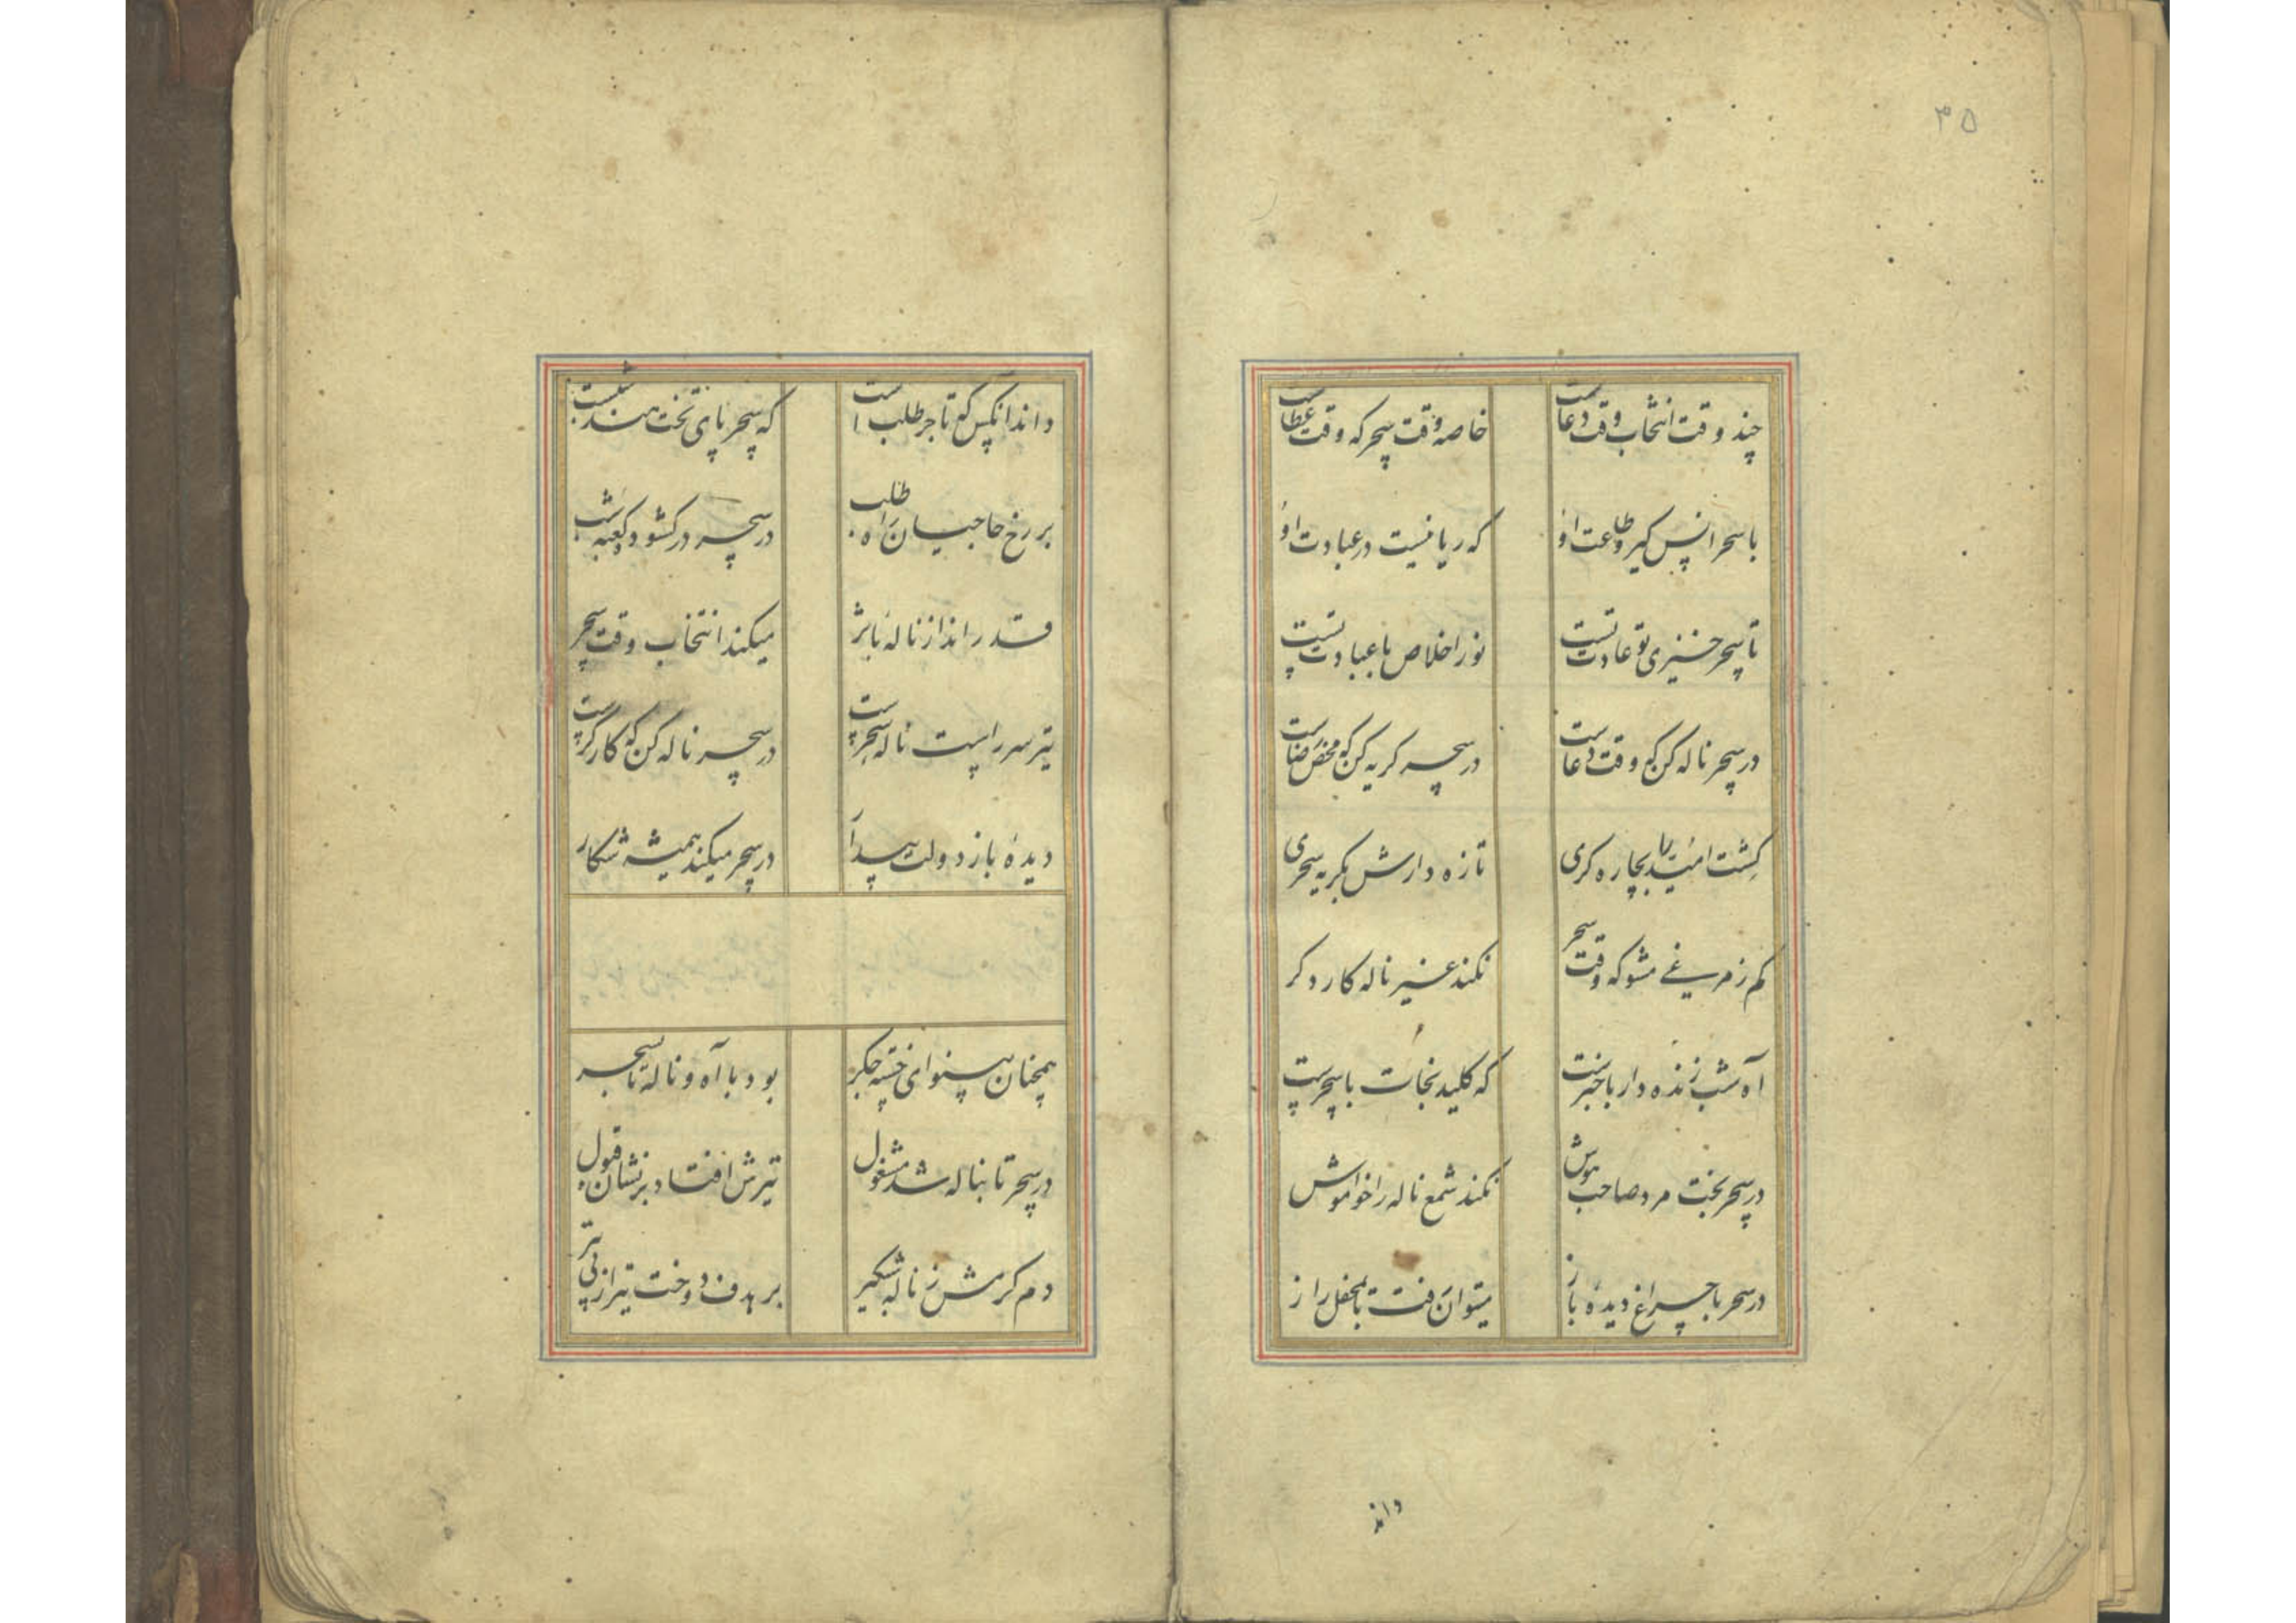 ۳۵
چند وقت انتخاب وقت دعاست خاصه وقت سحر که وقت عطاست
با سحر انس گیر و طاعت او که ریا نیست در عبادت او
تا سحر خیزی تو عادت نیست نور اخلاص با عبادت نیست
در سحر ناله کن که وقت دعاست در سحر گریه کن که محض رضاست
کشت امید را بچاره گری تازه دارش بگریه سحری
کم ز مرغی مشو که وقت سحر نکند غیر ناله کار دگر
آه شب زنده دار با خبرست که کلید نجات با سحرست
در سحر بخت مرد صاحب هوش نکند شمع ناله را خواموش
در سحر با چراغ دیده باز میتوان رفت تا بمحفل راز
داند
داند انکس که تاجر طلب است که سحر پای تخت هند شبست
بر رخ حاجیان راه طلب در سحر در گشود کعبه شب
قدر انداز ناله با اثر میکند انتخاب وقت سحر
تیر سر راست ناله سحرست در سحر ناله کن که کارگرست
دیده باز دولت بیدار در سحر میکند همیشه شکار
همچنان پیسنوای خسته جگر بود با آه و ناله تا سحر
در سحر تا بناله شد مشغول تیرش افتاد بر نشان قبول
دم گرمش ز ناله شبگیر بر هدف دوخت تیر از پی تیر